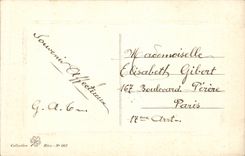 Souvenir Affectueux
G. A. G.
Mademoiselle
Elisabeth Gibert
167 Boulevard Péreire
Paris
17ème Arrt.
Collection
Déco - Nº